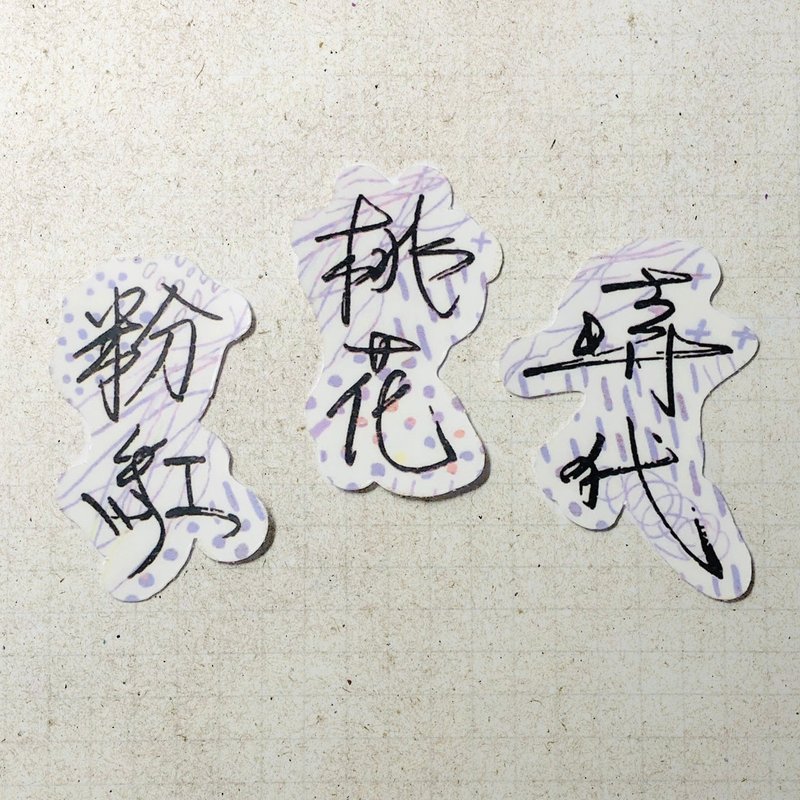 粉紅
桃花
代